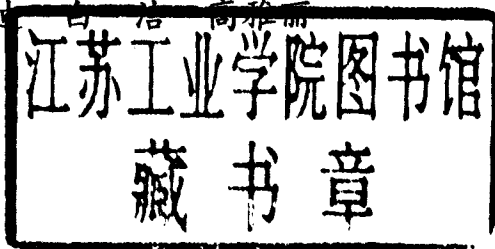 白 洁 高雅丽
江苏工业学院图书馆
藏书章